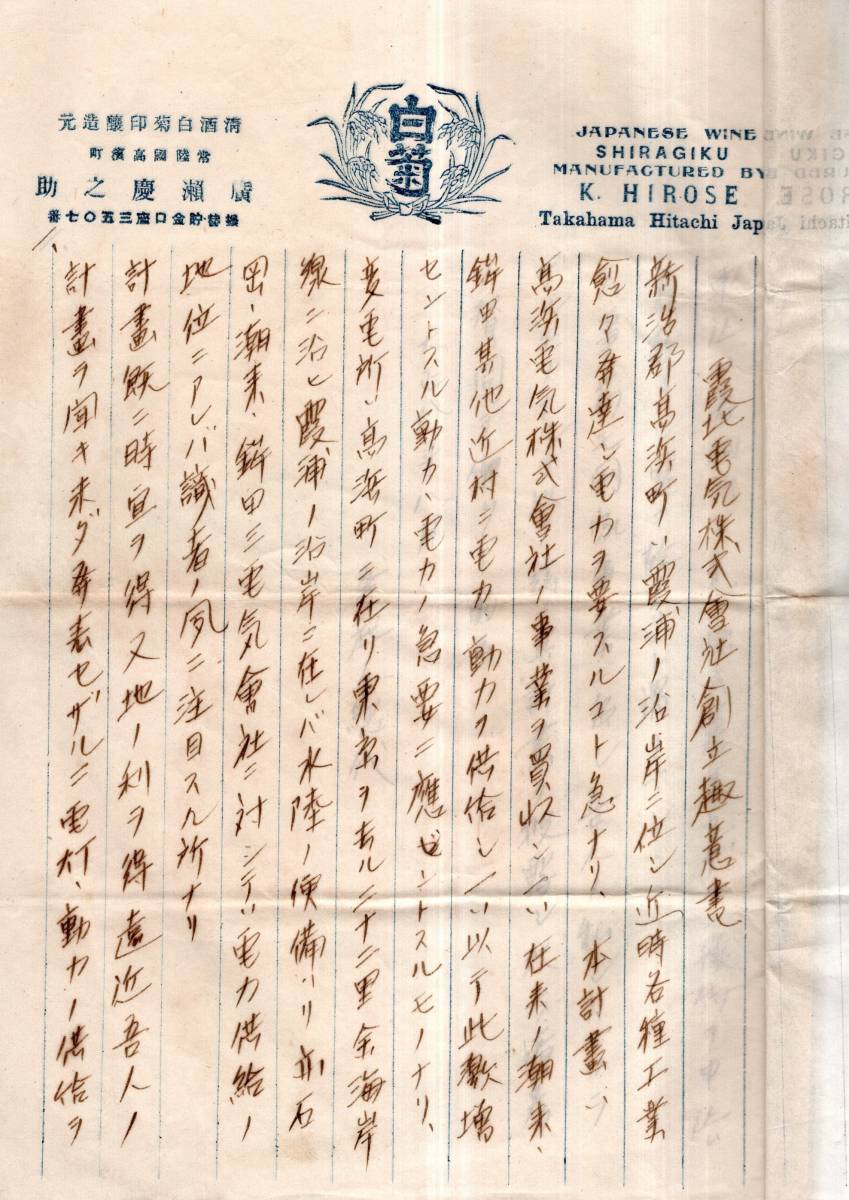 清酒白菊印釀造元
常陸國高濱町
廣瀬慶之助
振替貯金口座三五〇七番
白菊
JAPANESE WINE
SHIRAGIKU
MANUFACTURED BY
K. HIROSE
Takahama Hitachi Japa
霞北電気株式會社創立趣意書
新治郡高浜町ハ霞浦ノ沿岸ニ位シ近時各種工業
愈々発達シ電力ヲ要スルコト急ナリ、本計畫ハ
高浜電気株式會社ノ事業ヲ買収シ一ハ在来ノ潮来、
鉾田其他近村ニ電力、動力ヲ供給シ一ハ以テ此激増
セントスル動力、電力ノ急要ニ應ゼントスルモノナリ、
変電所ハ高浜町ニ在リ東京ヲ去ル二十二里余海岸
線ニ沿ヒ霞浦ノ沿岸ニ在レバ水陸ノ便備ハリ亦石
岡、潮来、鉾田三電気會社ニ対シテハ電力供給ノ
地位ニアレバ識者ノ夙ニ注目スル所ナリ
計畫既ニ時宜ヲ得又地ノ利ヲ得遠近吾人ノ
計畫ヲ聞キ未ダ発表セザルニ電灯、動力ノ供給ヲ